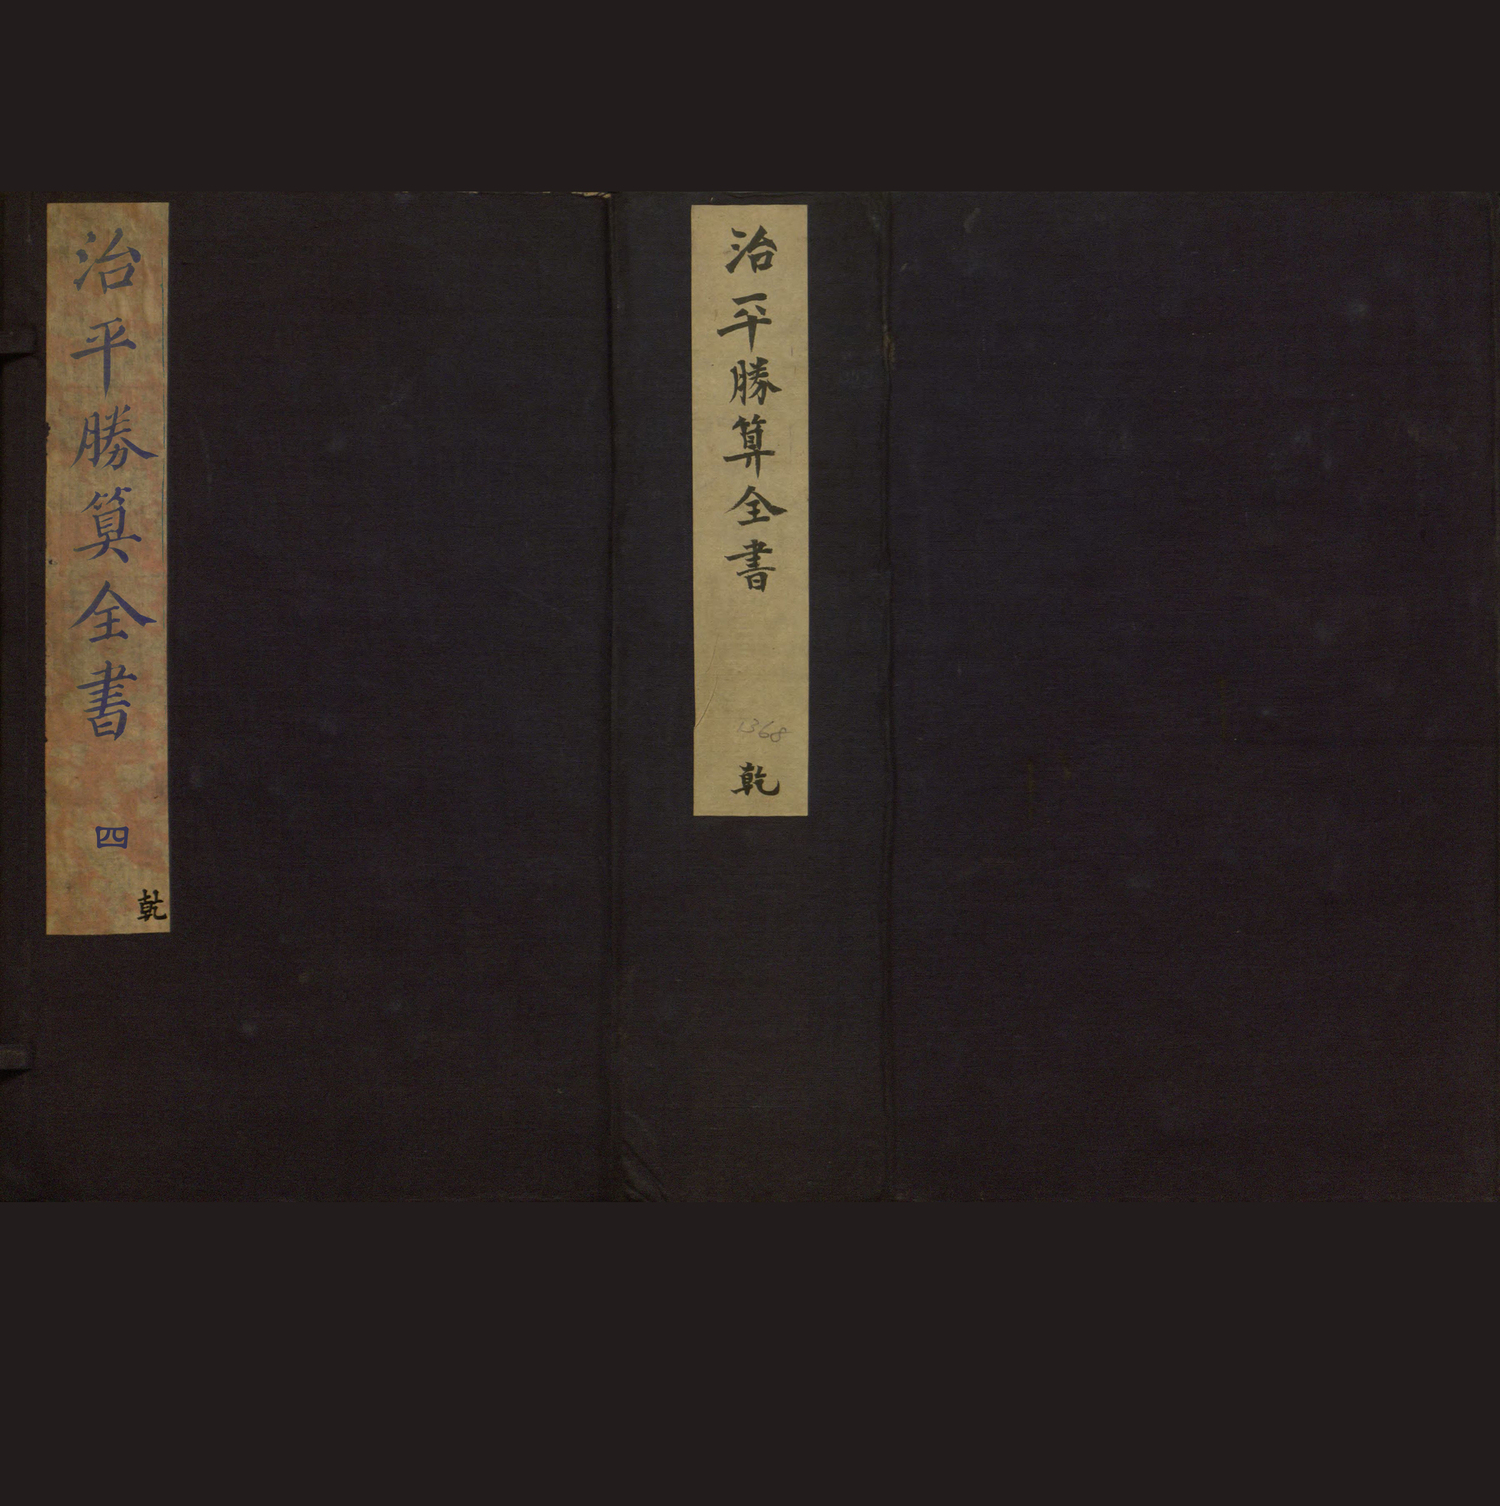 治平勝算全書
1368
乾
治平勝筭全書
四
乾